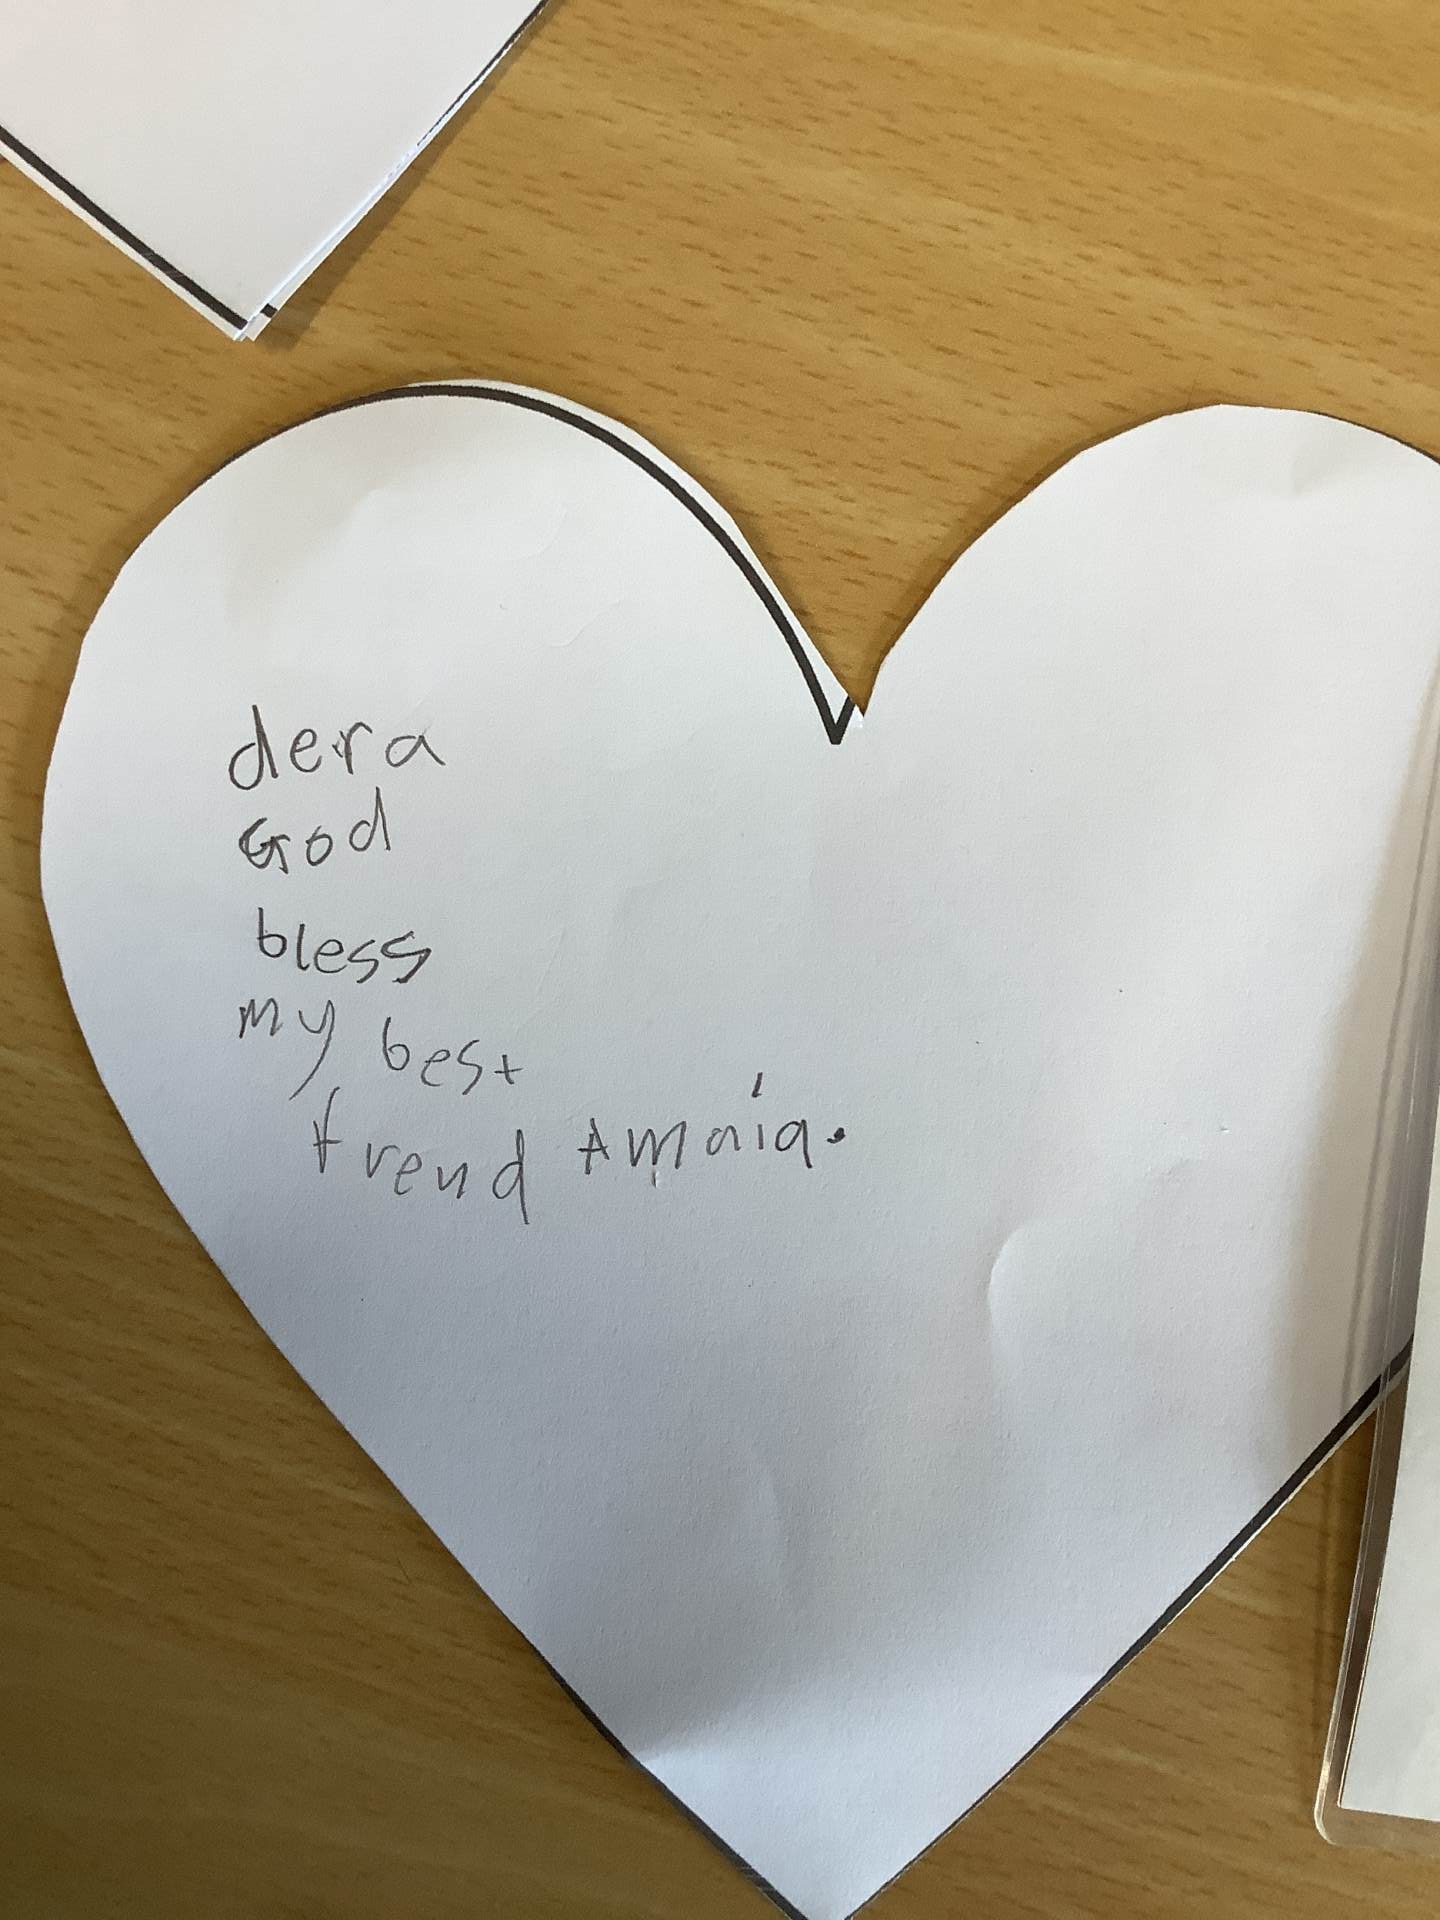 dera
God
bless
my best
frend Amaia.